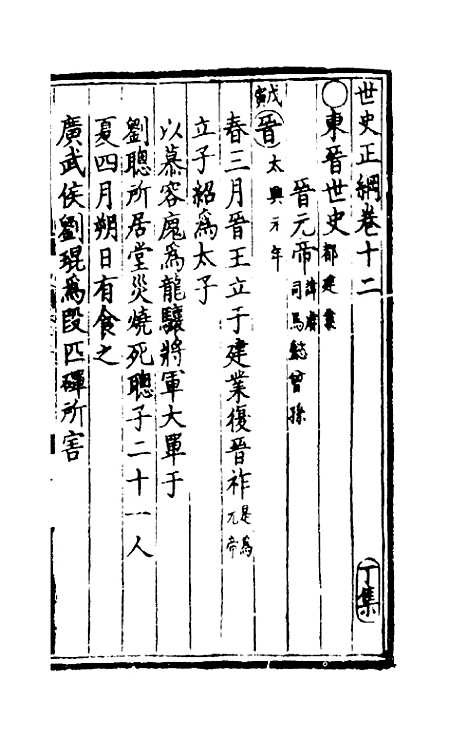 世史正綱卷十二 丁集
○東晉世史 都建業
晉元帝 諱睿司馬懿曾孫
戊寅 晉 太興元年
春三月晉王立于建業復晉祚 是爲元帝
立子紹爲太子
以慕容廆爲龍驤將軍大單于
劉聰所居堂災燒死聰子二十一人
夏四月朔日有食之
廣武侯劉琨爲段匹磾所害